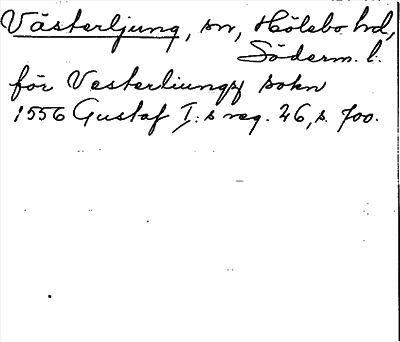 Västerljung, sn, Hölebo hd,
Söderm. l.
för Vesterliungx sokn
1556 Gustaf I:s reg. 26, s. 700.